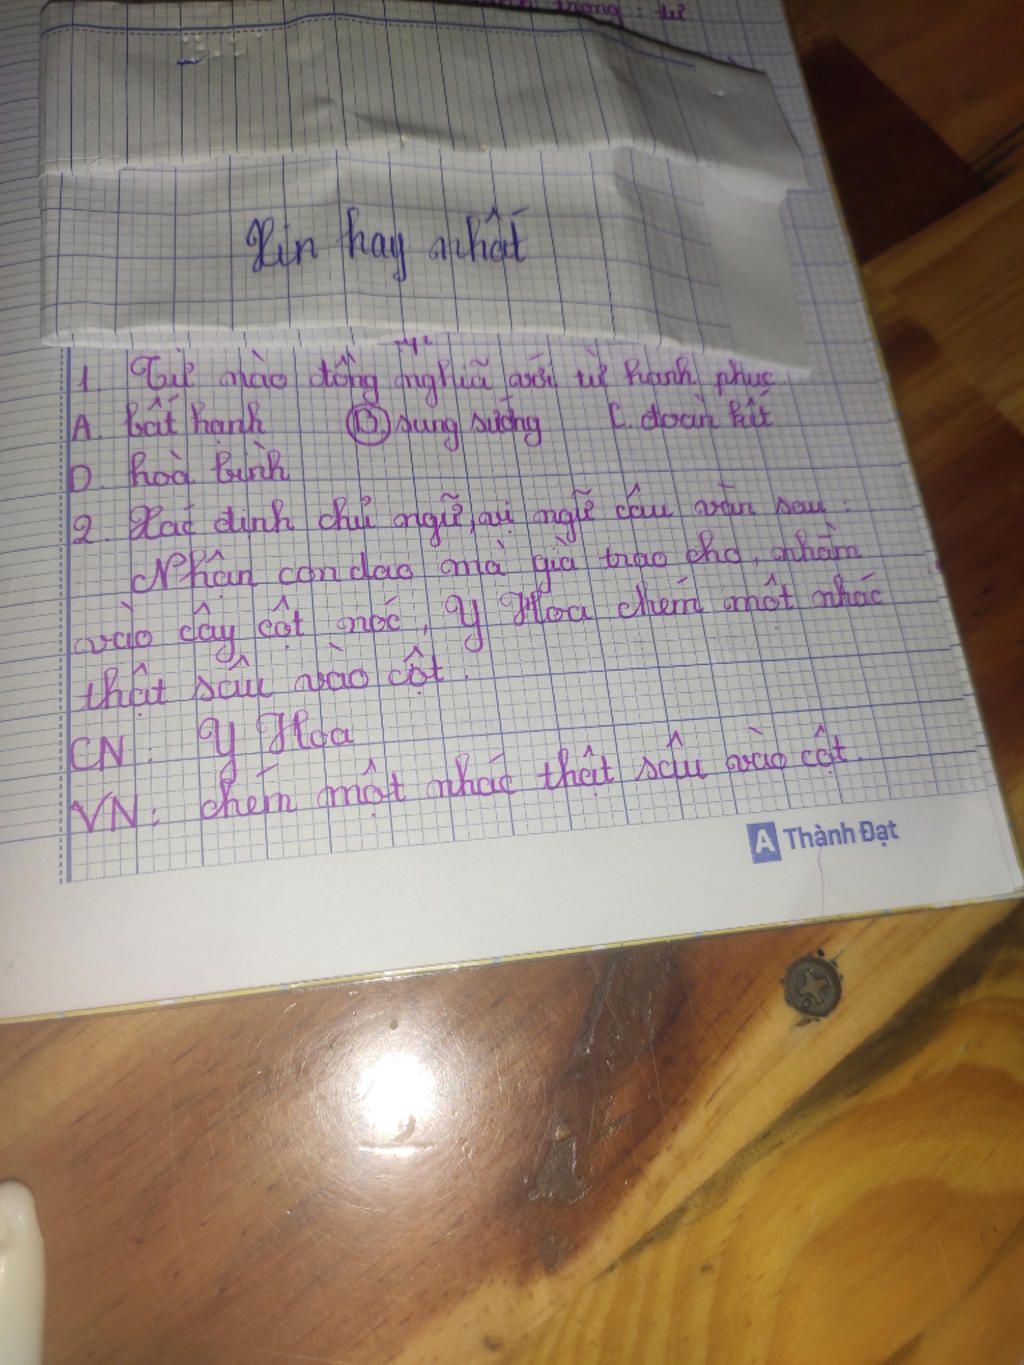 trong: từ
hay nhất
1. Từ nào đồng nghĩa với từ hạnh phúc
A. bất hạnh B sung sướng C. đoàn kết
D. hoà bình
2. Xác định chủ ngữ, vị ngữ câu văn sau:
Nhận con dao mà già trao cho, nhằm
vào cây cột nóc, Y Hoa chém một nhác
thật sâu vào cột.
CN: Y Hoa
VN: chém một nhác thật sâu vào cột.
A Thành Đạt